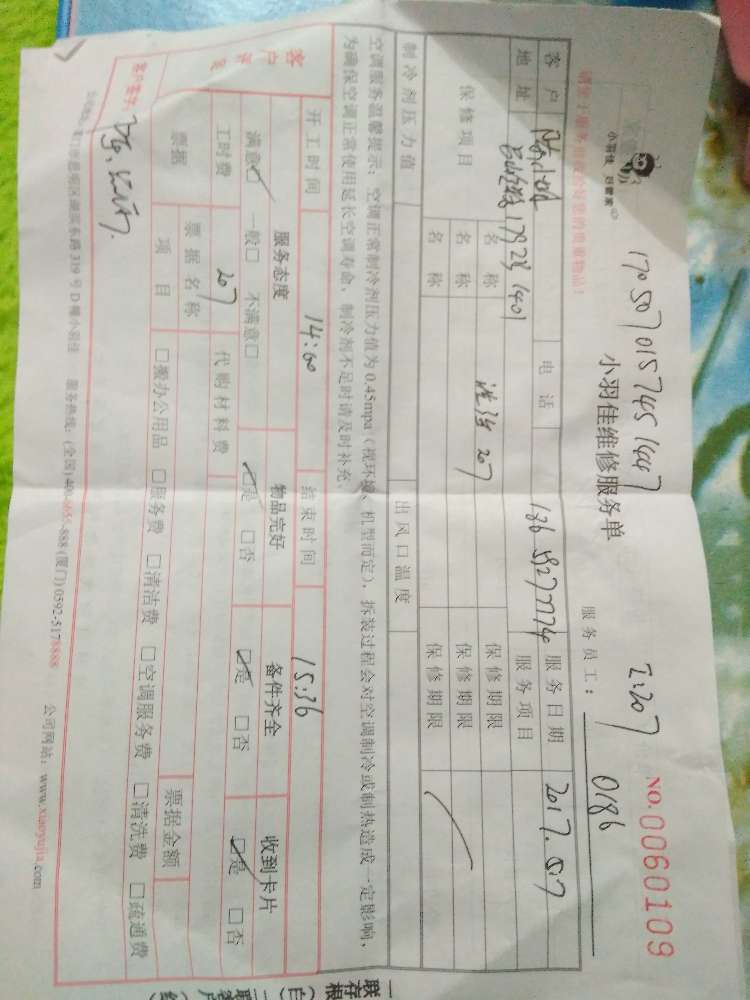 小羽佳 好管家
17050701574S1447
2:207
NO.0060109
小羽佳维修服务单
服务员工： 0186
客户 电话 服务日期 2017.5.7
地址 1401 服务项目
保修项目 名称 保修期限
名称 保修期限
名称 保修期限
制冷剂压力值 出风口温度
空调服务温馨提示：空调正常制冷剂压力值为0.45mpa（视环境、机型而定），拆装过程会对空调制冷或制热造成一定影响，
为确保空调正常使用延长空调寿命，制冷剂不足时请及时补充
开工时间 14:00 结束时间 15:36
客户评定
服务态度 物品完好 备件齐全 收到卡片
满意☑ 一般□ 不满意□ ☑是 □否 ☑是 □否 ☑是 □否
工时费 207 代购材料费
票据 票据名称 票据金额
项目 □搬办公用品 □服务费 □清洁费 □空调服务费 □清洗费 □疏通费
客户签字：
319号D幢小羽佳 服务热线：(全国)400-665-888(厦门)0592-5178888 公司网站：www.xiaoyujia.com